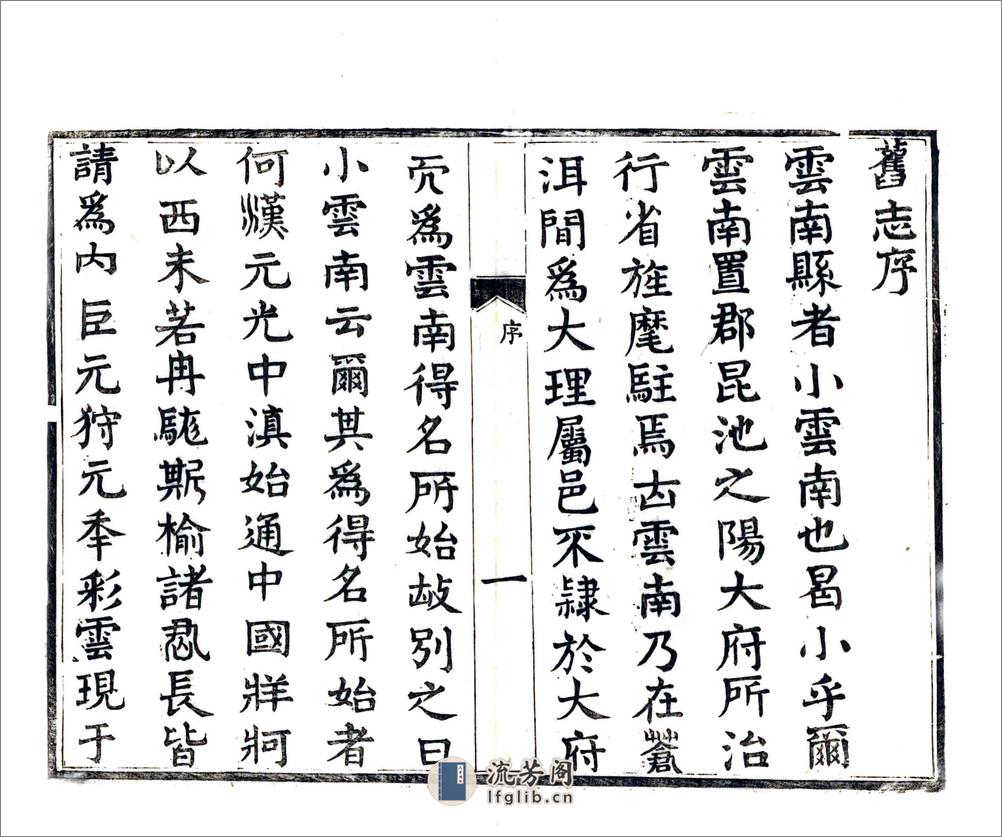 舊志序
雲南縣者小雲南也曷小乎爾
雲南置郡昆池之陽大府所治
行省旌麾駐焉古雲南乃在蒼
洱間爲大理屬邑不隸於大府
序
一
爲雲南得名所始故別之曰
小雲南云爾其爲得名所始者
何漢元光中滇始通中國牂牁
以西未若冉駹斯榆諸君長皆
請爲内臣元狩元年彩雲現于
流芳阁
lfglib.cn